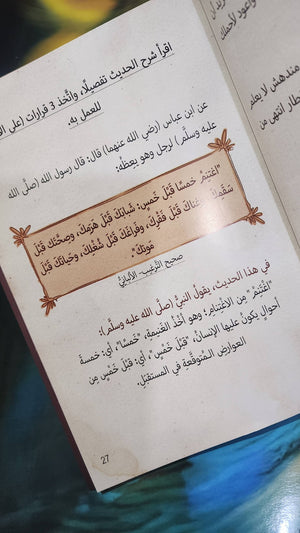 اقرأ شرح الحديث تفصيلًا، واتَّخذ 3 قرارات (على
للعمل به.
عن ابن عباس (رضي الله عنهما) قال: قال رسول الله (صلَّى الله
عليه وسلَّم) لرجل وهو يعِظُه:
"اغْتَنِمْ خَمسًا قَبْلَ خَمسٍ: شَبابَكَ قَبْلَ هَرَمِكَ، وصِحَّتَكَ قَبْلَ
سَقَمِكَ، وغِنَاكَ قَبْلَ فَقْرِكَ، وفَراغَكَ قَبْلَ شُغْلِكَ، وحَياتَكَ قَبْلَ
مَوتِكَ".
صحيح التَّرغيب-الألبانيّ
في هذا الحديث، يقولُ النبيُّ (صلَّى الله عليه وسلَّم):
"اغْتَنِمْ" مِن الاغْتنامِ؛ وهو أخْذُ الغَنيمةِ، "خَمسًا"، أي: خمسةَ
أحوالٍ يكونُ عليها الإنسانُ، "قبْلَ خَمْسٍ"، أي: قبْلَ خَمْسٍ مِن
العوارضِ المُتوقَّعةِ في المستقبَلِ.
27
مندهش لا يعلم